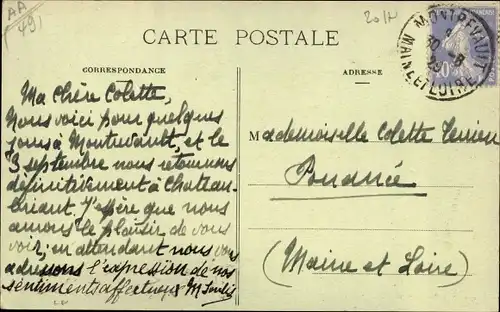 AA
491
20 N
CARTE POSTALE
CORRESPONDANCE
ADRESSE
MONTREVAULT
30 - 8
MAINE ET LOIRE
Ma Chère Colette,
Nous voici pour quelques
jours à Montrevault, et le
3 septembre nous retournons
définitivement à Chateau-
briant J'espère que nous
aurons le plaisir de vous
voir, en attendant nous vous
adressons l'expression de nos
sentiments affectueux M
Mademoiselle Colette Terrien
Pouancé
(Maine et Loire)